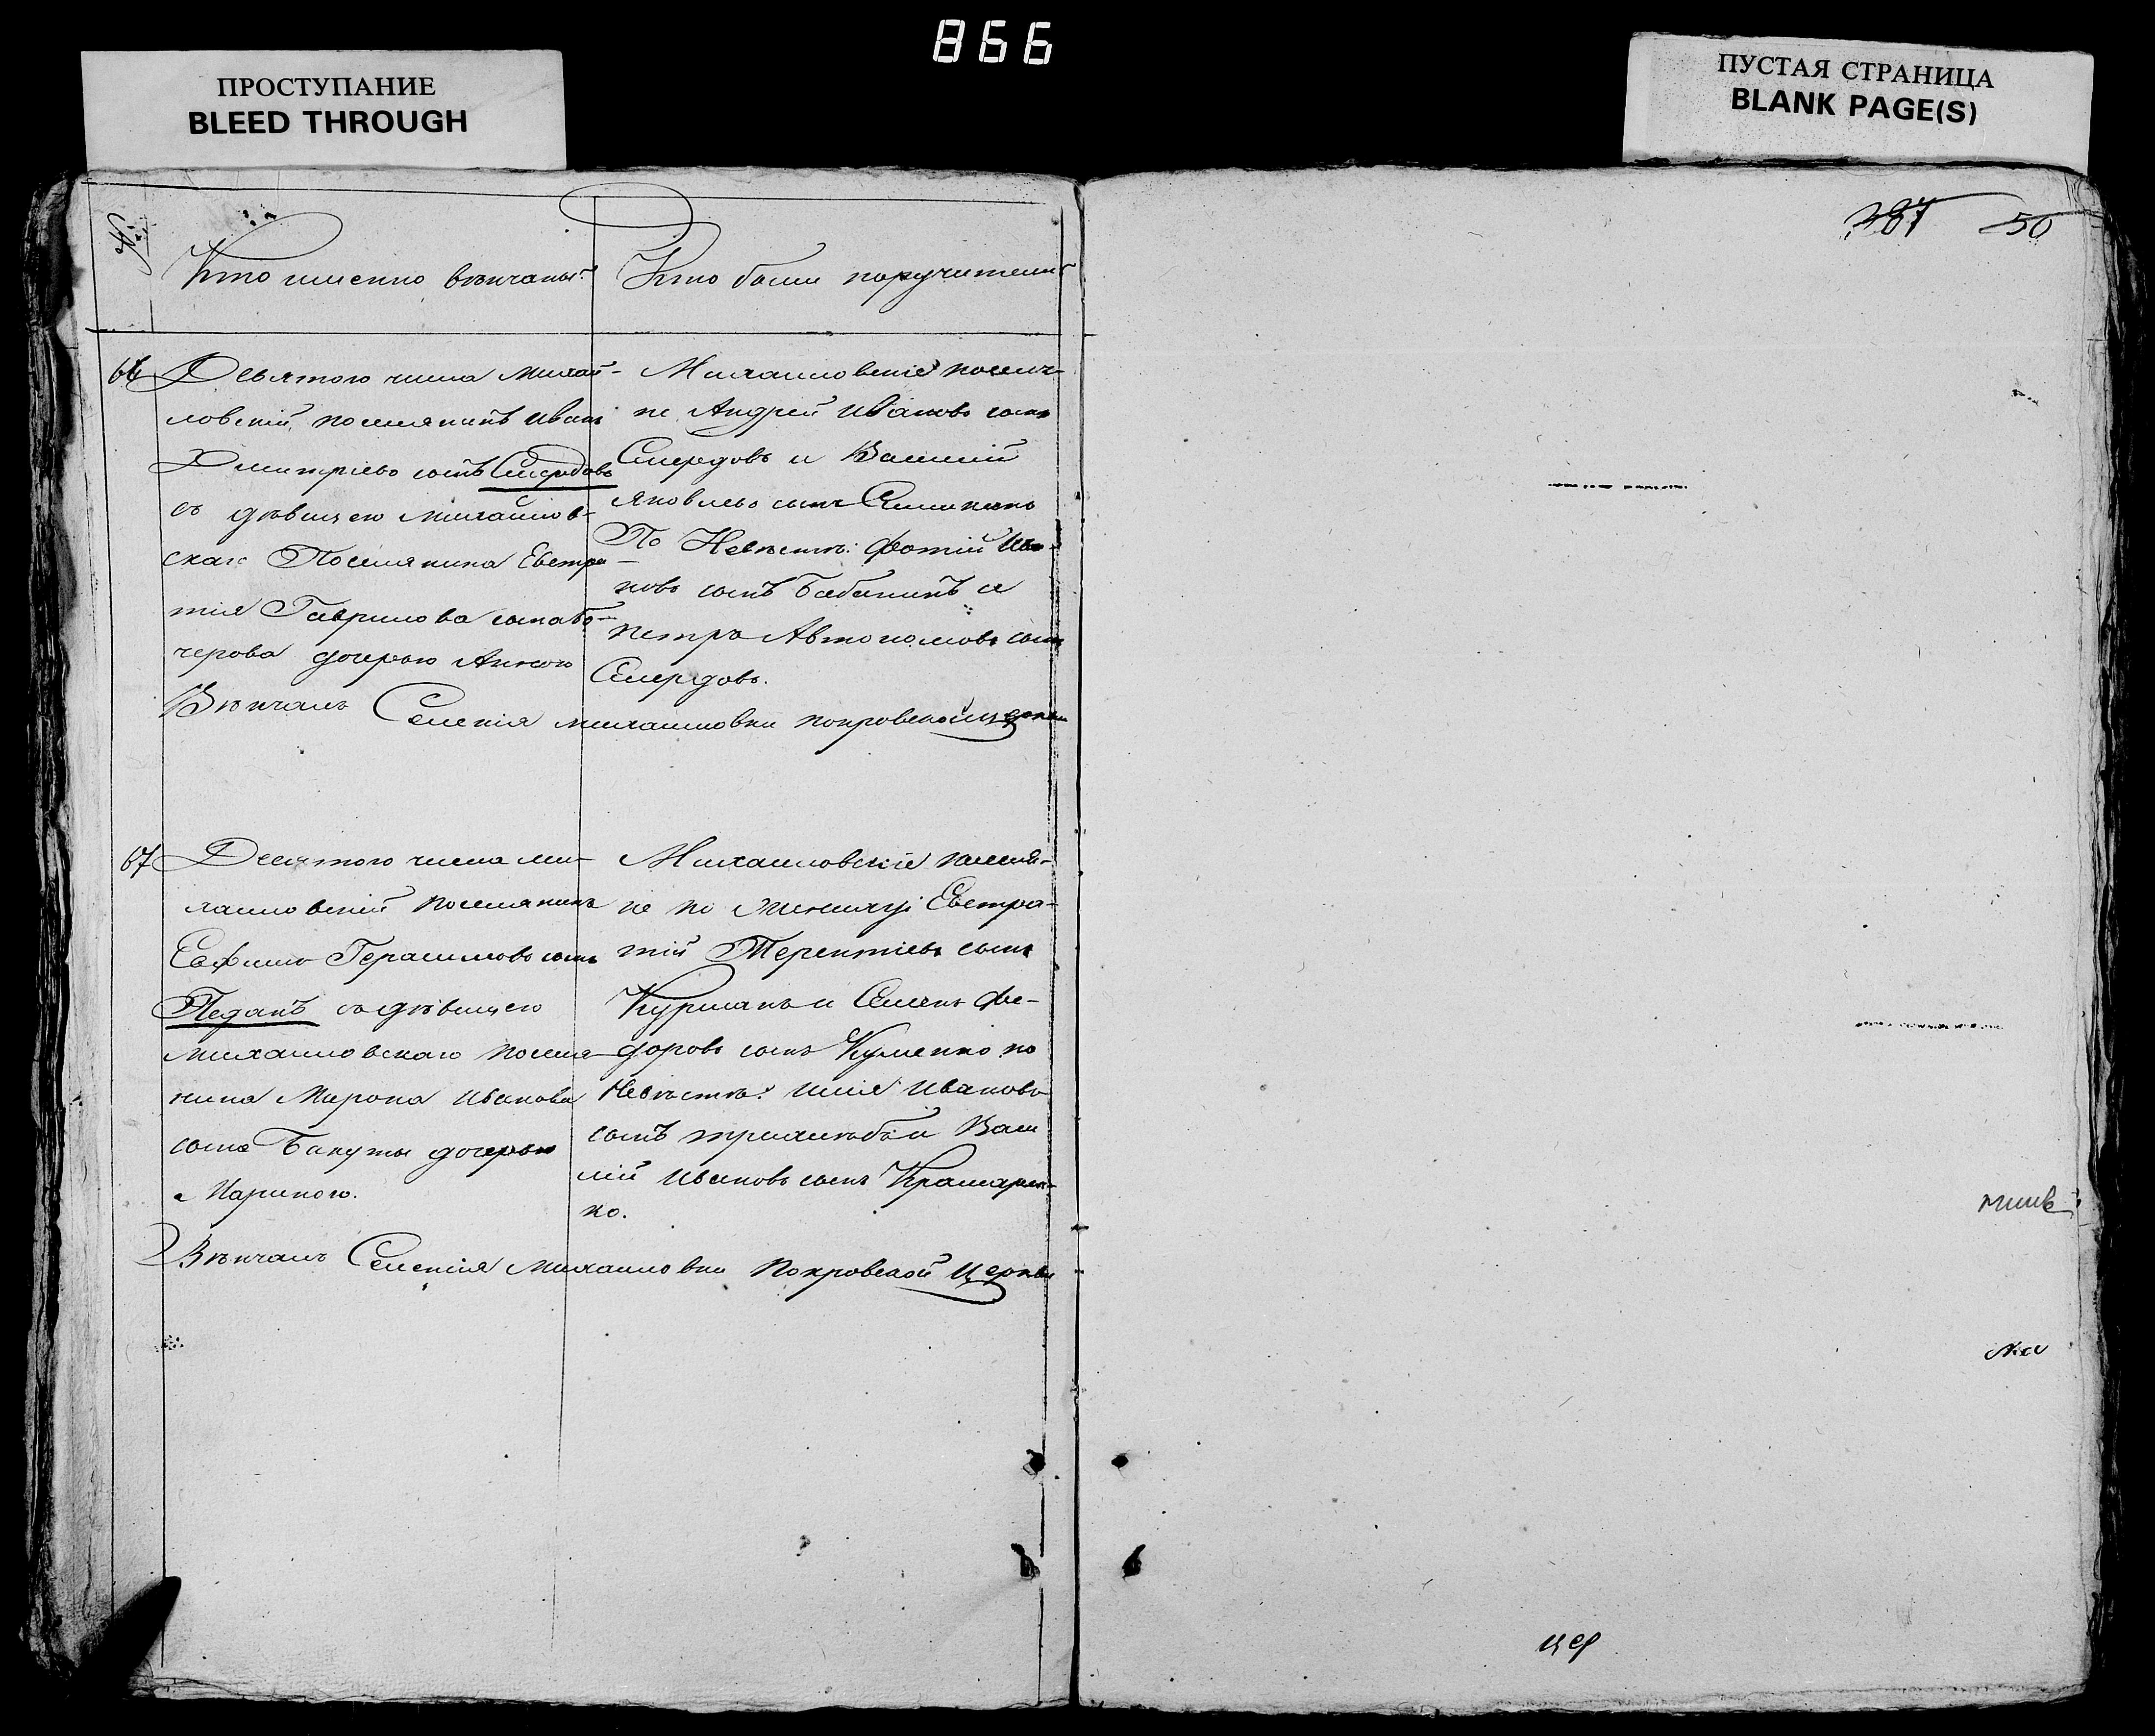 866
ПРОСТУПАНИЕ
BLEED THROUGH
ПУСТАЯ СТРАНИЦА
BLANK PAGE(S)
387 50
Кто именно вѣнчаны?
Кто были поручители
66
Девятого числа михай-
ловскій поселянинъ иванъ
Дмитріевъ сынъ Смердовъ
съ дѣвицею михайлов-
скаго Поселянина Евстра-
тія Гаврилова сына Бо-
черова дочерью Анною
Михаиловскіе поселя-
не Андрей ивановъ сынъ
Смердовъ и Василій
яковлевъ сынъ
По Невѣстѣ: фотій Ива-
новъ сынъ Бабанинъ и
петръ Автономовъ сынъ
Смердовъ.
Вѣнчалъ Селенія михаиловки покровской церкви
67
Десятого числа ми-
хаиловскій поселянинъ
Евфимъ Герасимовъ сынъ
Педанъ съ дѣвицею
михаиловскаго поселя-
нина Мирона иванова
сына Бакуты дочерью
Мариною.
Михаиловскіе поселя-
не по женихуѣ Евстра-
тій Терентіевъ сынъ
Курманъ и Семенъ Фе-
доровъ сынъ Куменко по
Невѣстѣ: илія ивановъ
сынъ и Васи
лій ивановъ сынъ Крамарен-
ко.
Вѣнчалъ Селенія Михаиловки Покровской Церкви
цер